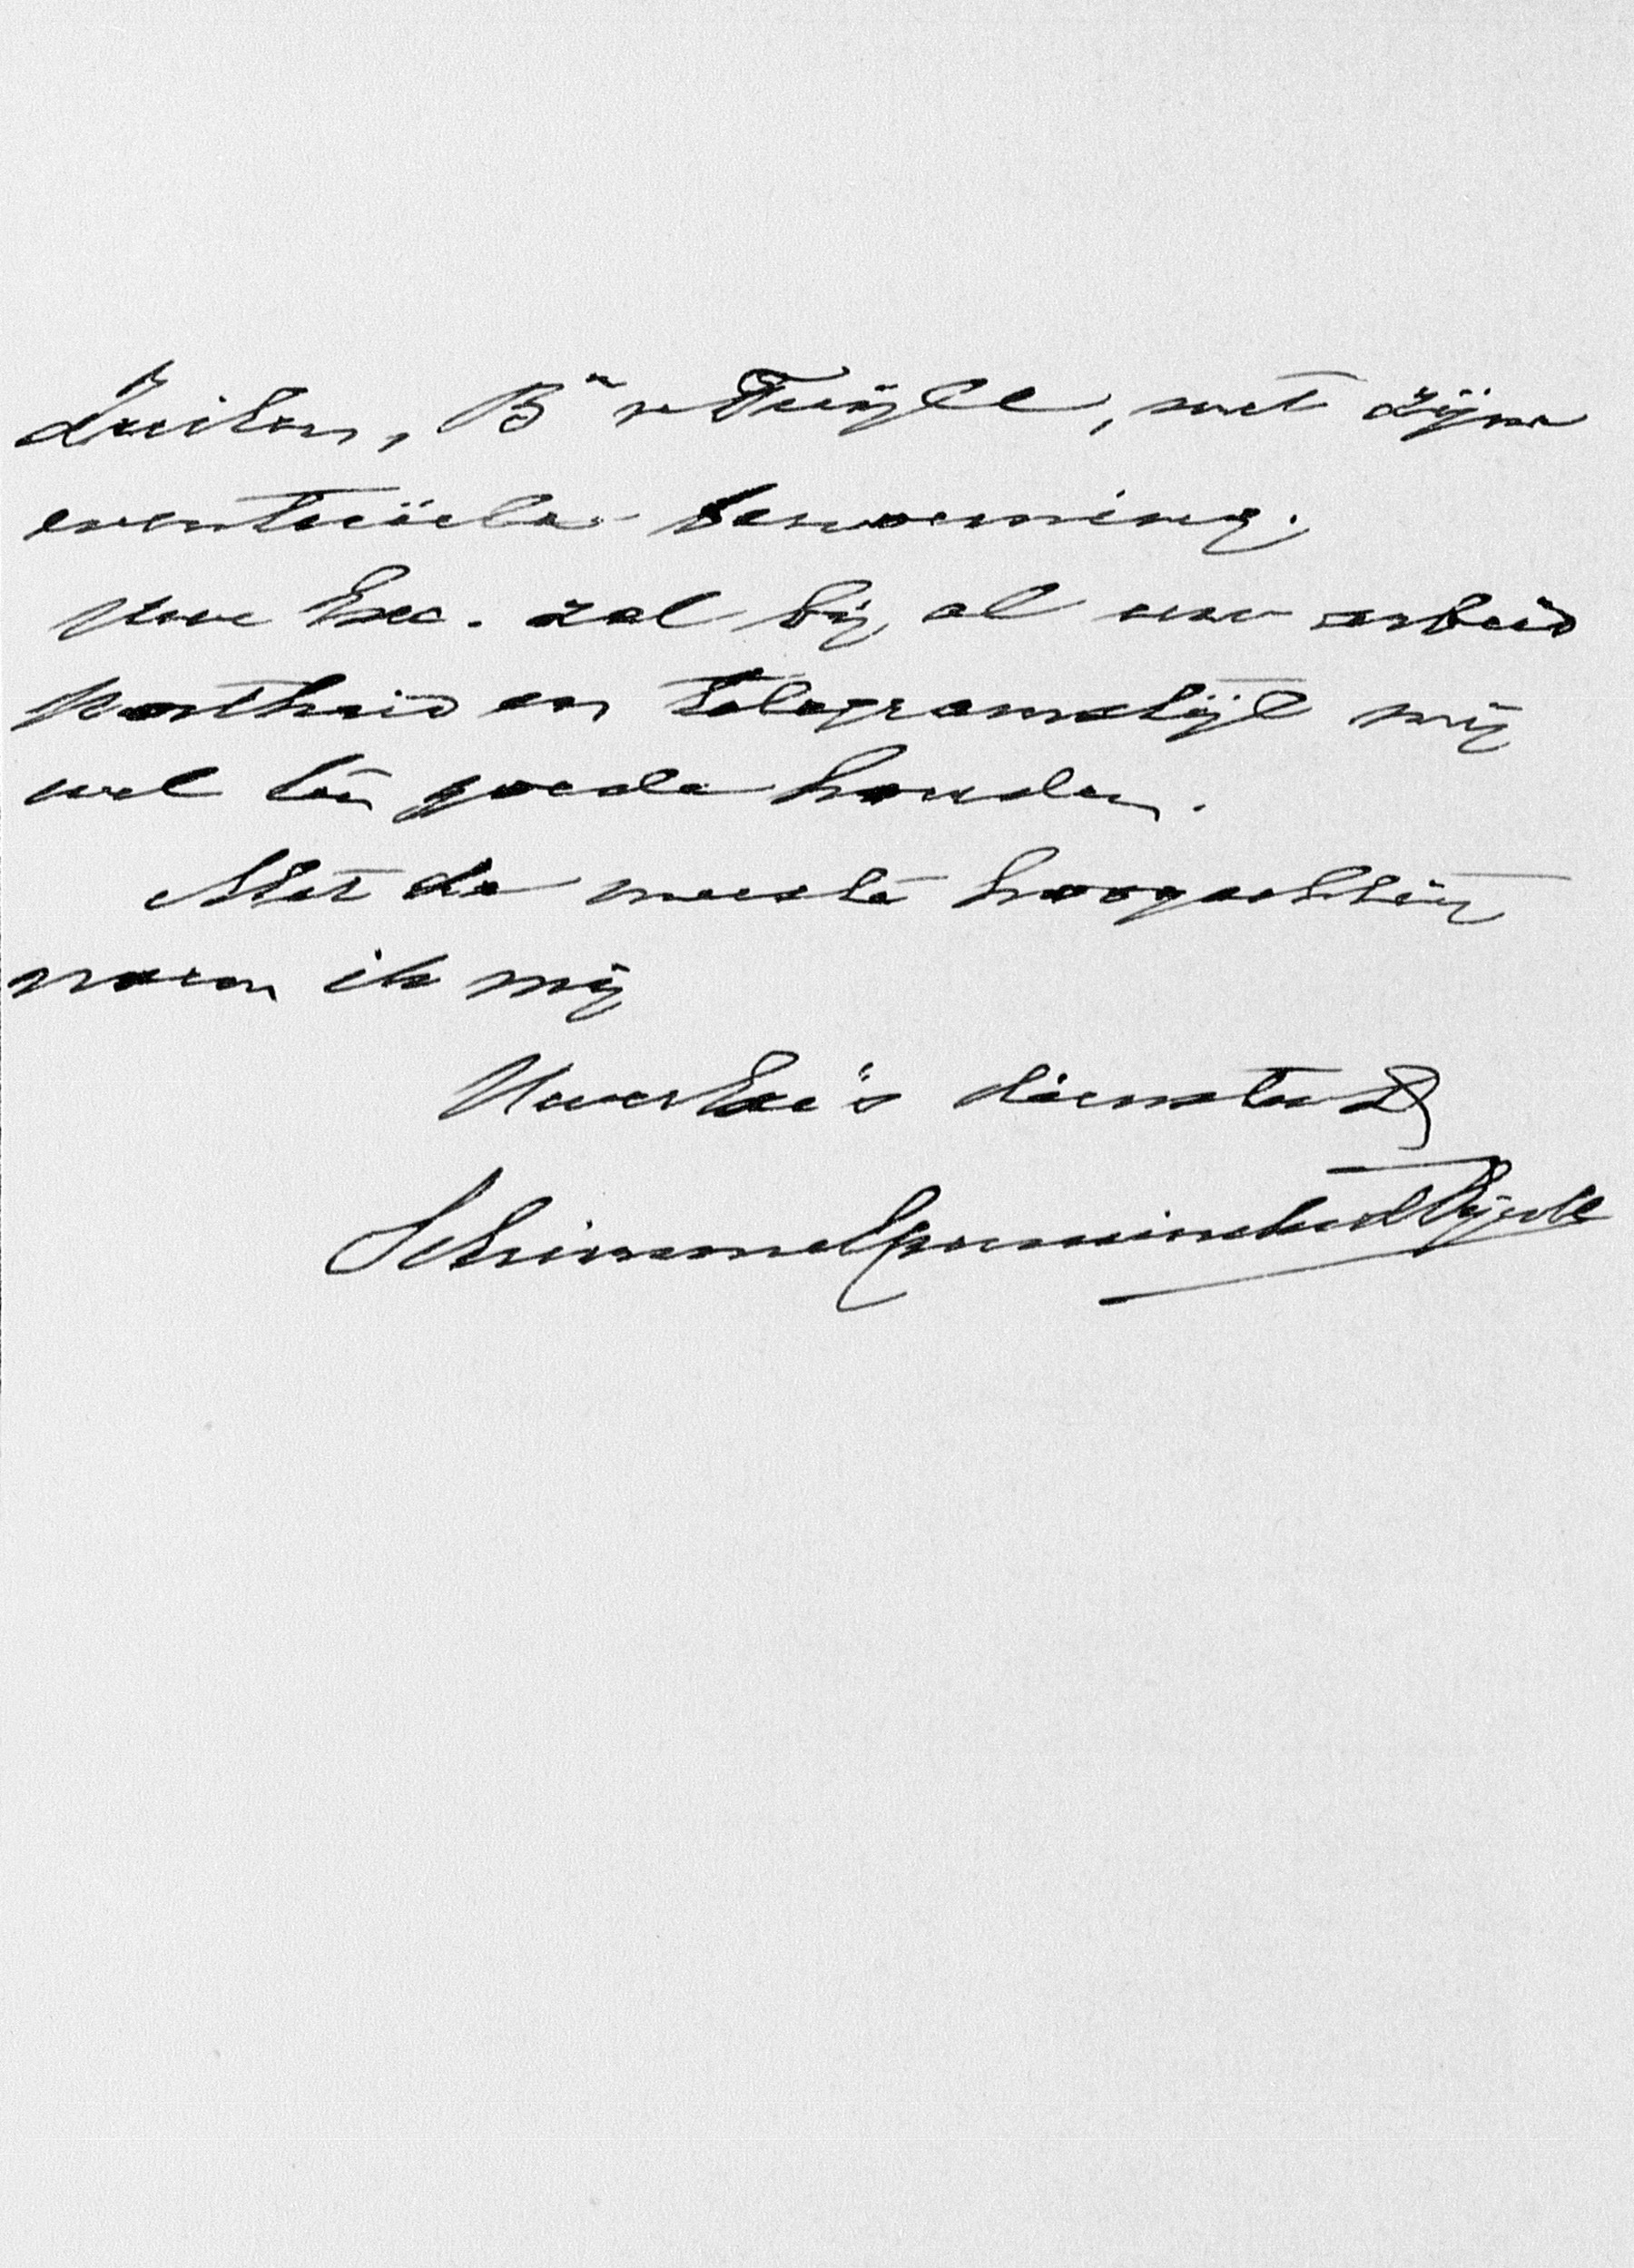 Zuilen, Bn v Tuijll, met zijne
eventuëele benoeming.
Uwe Exc. zal bij al uw arbeid
kortheid en telegramstijl mij
wel ten goede houden.
Met de meeste hoogachting
noem ik mij
Uwer Exc's dienstv. D
Schimmelpenninck vd Nijenb